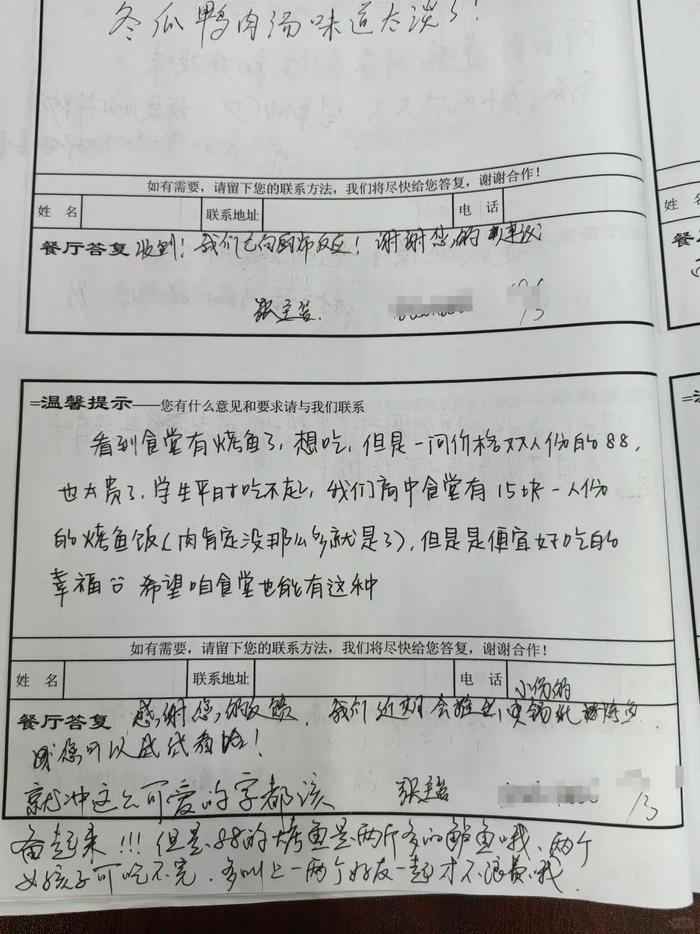 冬瓜鸭肉汤味道太淡了!
如有需要，请留下您的联系方法，我们将尽快给您答复，谢谢合作！
姓 名 联系地址 电 话
餐厅答复 收到！我们已向厨师反应！谢谢您的建议
张主管 13
=温馨提示——您有什么意见和要求请与我们联系
看到食堂有烤鱼了，想吃，但是一问价格双人份的88，
也太贵了，学生平时吃不起，我们高中食堂有15块一人份
的烤鱼饭(肉肯定没那么多就是了)，但是是便宜好吃的
幸福 希望咱食堂也能有这种
如有需要，请留下您的联系方法，我们将尽快给您答复，谢谢合作！
姓 名 联系地址 电 话
小份的
餐厅答复 感谢您的反馈，我们近期会推出
您可以 !
就冲这么可爱的字都该 张主管 13
备起来!!!但是88的烤鱼是两斤多的鲈鱼哦、两个
女孩子可吃不完，多叫上一两个好友一起才不浪费哦.